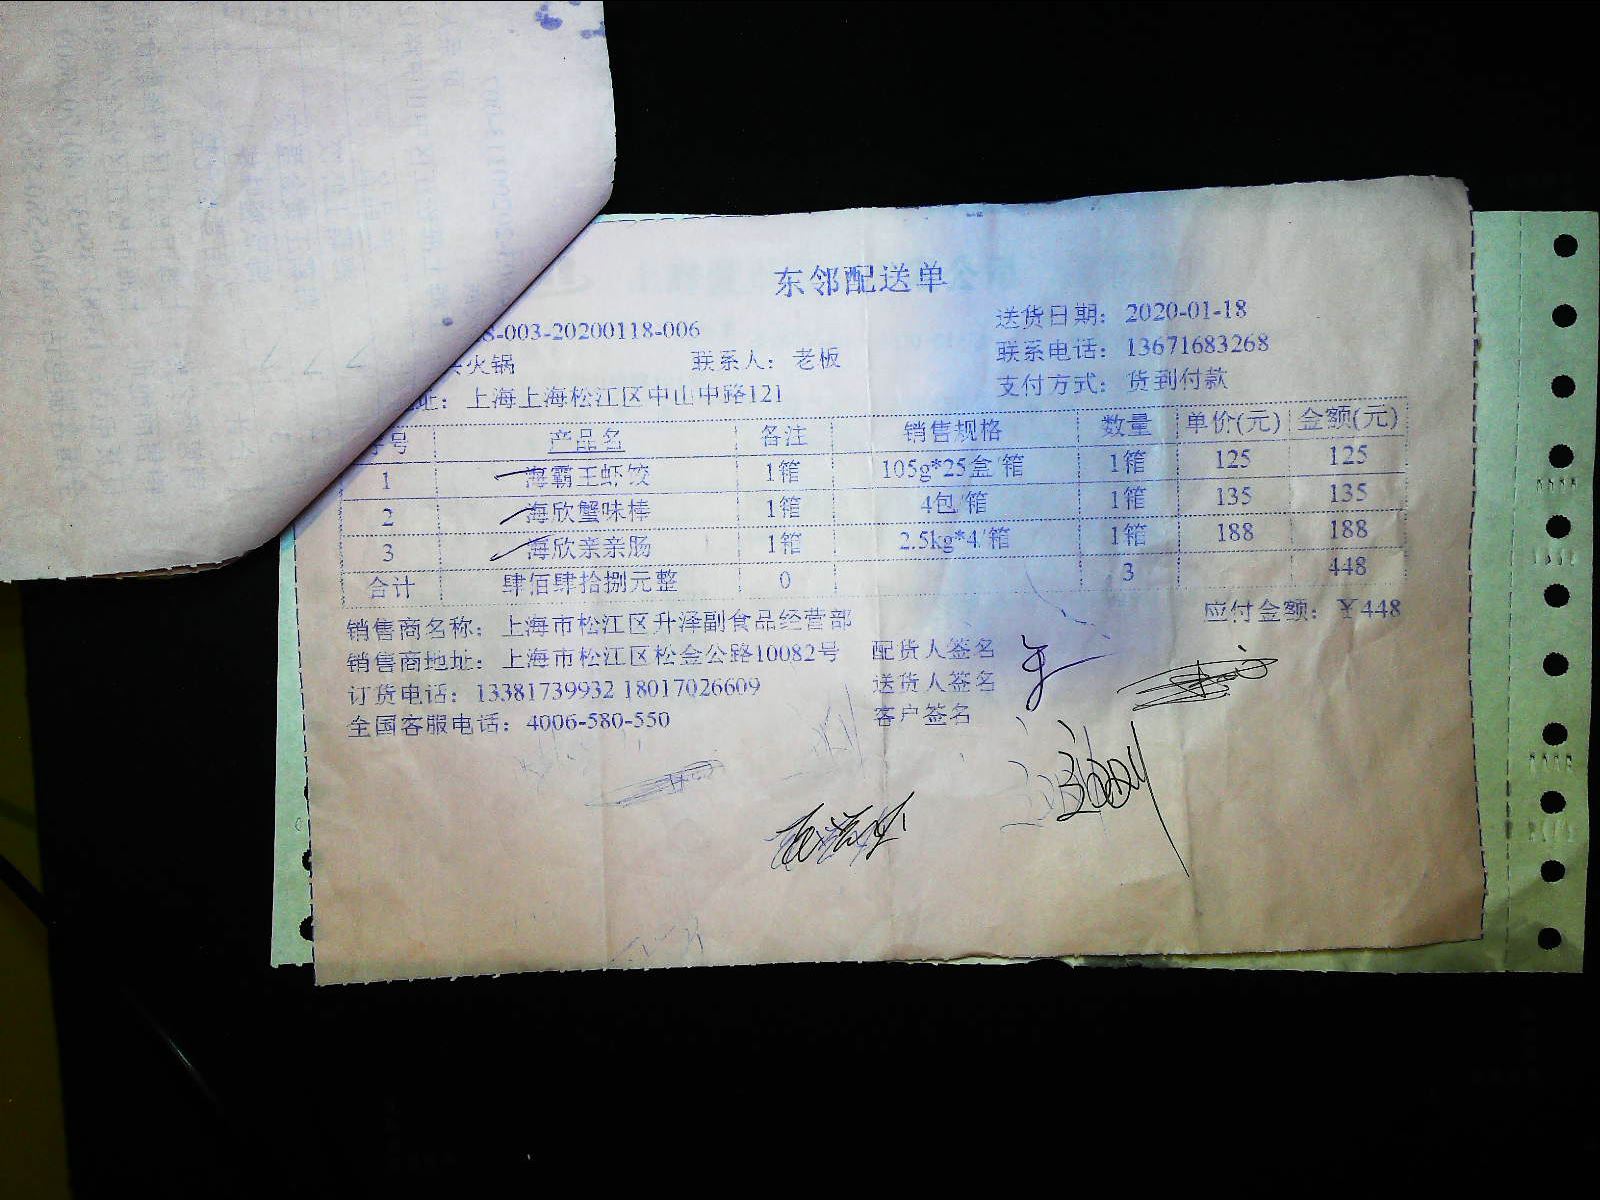 东邻配送单
8-003-20200118-006
送货日期： 2020-01-18
火锅 联系人： 老板 联系电话： 13671683268
址： 上海上海松江区中山中路121 支付方式： 货到付款
号 产品名 备注 销售规格 数量 单价(元) 金额(元)
1 海霸王虾饺 1箱 105g*25盒/箱 1箱 125 125
2 海欣蟹味棒 1箱 4包/箱 1箱 135 135
3 海欣亲亲肠 1箱 2.5kg*4/箱 1箱 188 188
合计 肆佰肆拾捌元整 0 3 448
销售商名称： 上海市松江区升泽副食品经营部 应付金额：￥448
销售商地址： 上海市松江区松金公路10082号 配货人签名
订货电话： 13381739932 18017026609 送货人签名
全国客服电话： 4006-580-550 客户签名